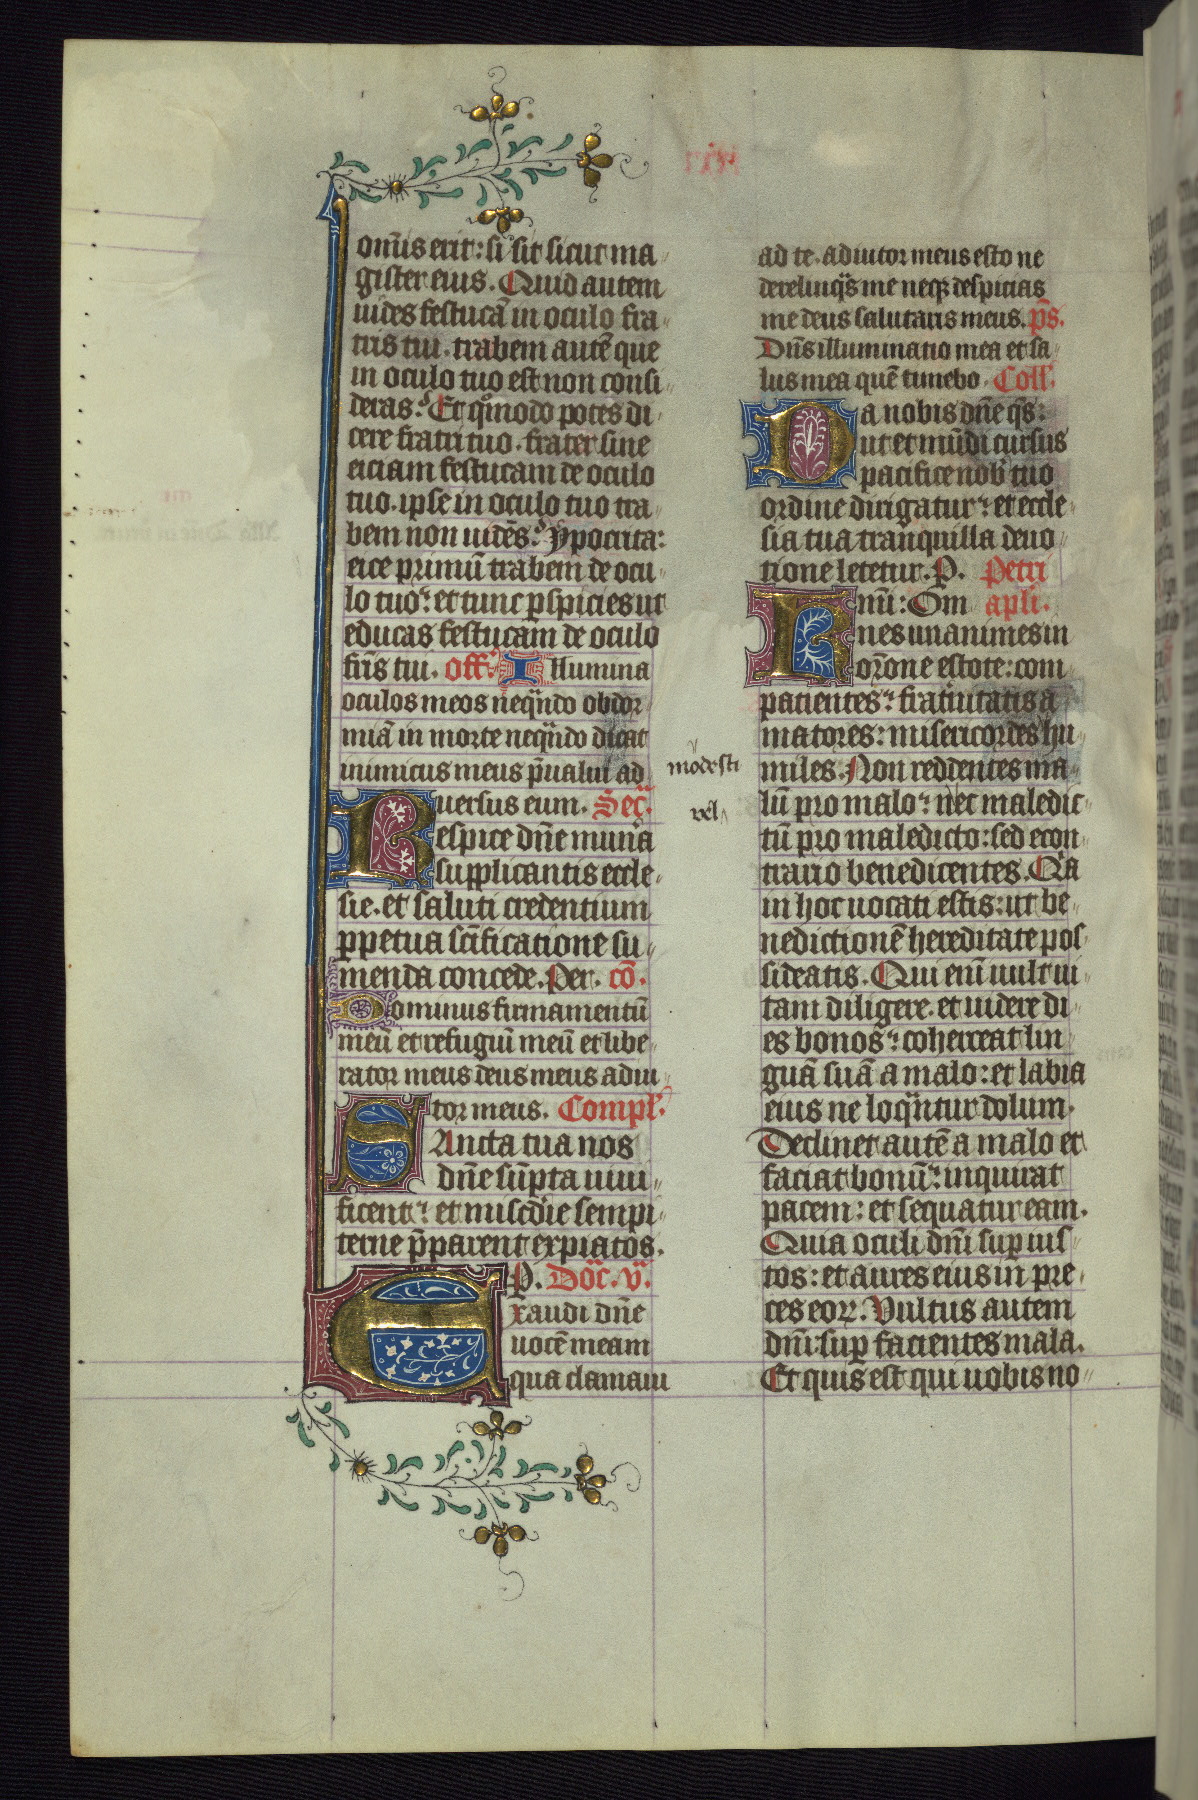 om̄is erit: si sit sicut ma
gister eius. Quid autem
uides festucā in oculo fra
tris tui. trabem autē que
in oculo tuo est non consi
deras. Et qͦmodo potes di
cere fratri tuo. frater sine
eiciam festucam de oculo
tuo. ipse in oculo tuo tra
bem non uidēs. Ypocrita:
eice primū trabem de ocu
lo tuo: et tunc ꝑspicies ut
educas festucam de oculo
fr̄is tui. Off. Illumina
oculos meos neqn̄do obdor
miā in morte neqn̄do dicat
inimicus meus p̄ualui ad
uersus eum. Sec̄.
Respice dn̄e mun̄a
supplicantis eccle
sie. et saluti credentium
ꝑpetua sc̄ificatione su
menda concede. Per. cō.
Dominus firmamentū
meū et refugiū meū et libe
rator meus deus meus adiu
tor meus. Compl̄.
SAncta tua nos
dn̄e sūpta uiui
ficent: et miscd̄ie sempi
terne p̄parent expiatos.
P. Dōc. v.
Exaudi dn̄e
uocē meam
qua clamaui
modesti
vel
ad te. adiutor meus esto ne
derelinqͣs me neqꝫ despicias
me deus salutaris meus. p̄s.
Dn̄s illuminatio mea et sa
lus mea quē timebo. Coll̄.
Da nobis dn̄e qs̄:
ut et mūdi cursus
pacifice nob̄ tuo
ordine dirigatur: et eccle
sia tua tranquilla deuo
tione letetur. P. Petri
Kmi: Om apl̄i.
nes unanimes in
or̄one estote: com
patientes: fr̄atnitatis a
matores: misericordes hu
miles. Non reddentes ma
lū pro malo: nec maledic
tū pro maledicto: sed econ
trario benedicentes. Qͥa
in hoc uocati estis: ut be
nedictionē hereditate pos
sideatis. Qui enī uult ui
tam diligere. et uidere di
es bonos: coherceat lin
guā suā a malo: et labia
eius ne loqn̄tur dolum.
Declinet autē a malo et
faciat bonū: inquirat
pacem: et sequatur eam.
Quia oculi dn̄i suꝑ ius
tos: et aures eius in pre
ces eoꝝ. Vultus autem
dn̄i suꝑ facientes mala.
Et quis est qui uobis no